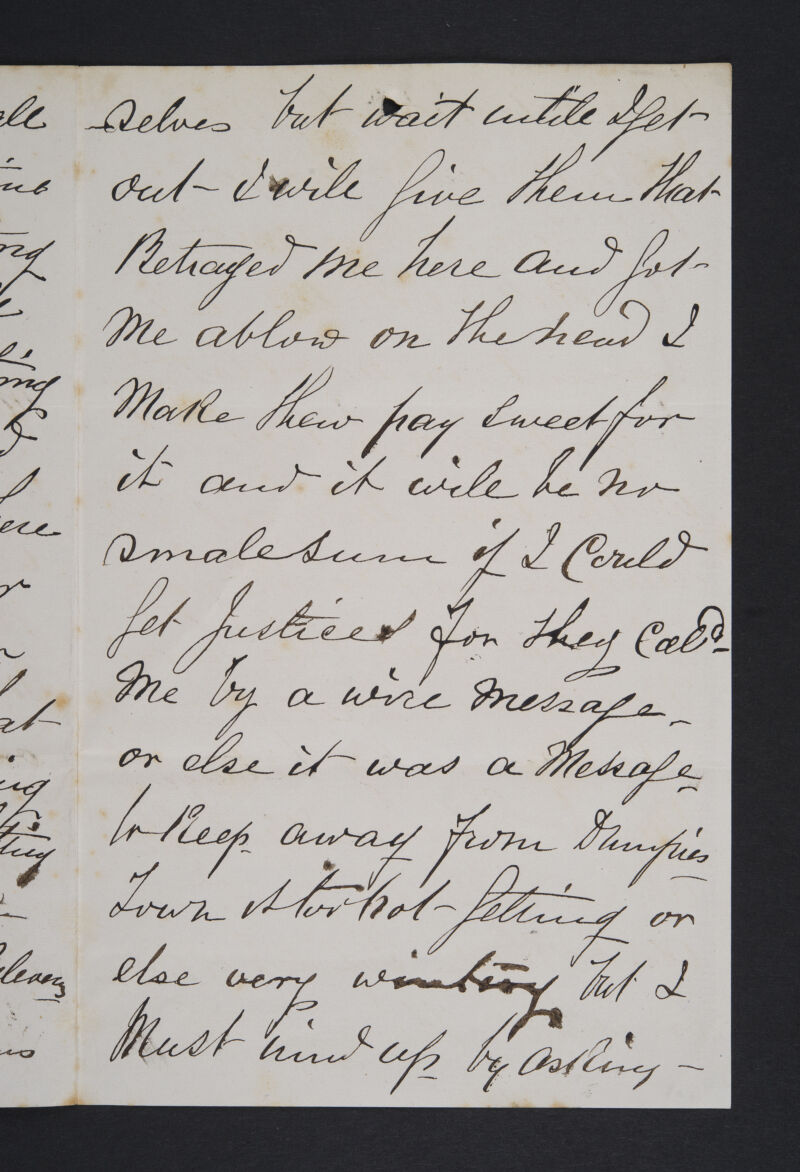 selves but wait untile I get
out - I wile give them that
Betrayed me here and got
Me ablow on the head I
Make them pay sweet for
it and it wile be no
smale sum if I Could
get Justice for they Cald
Me by a wire Message
or else it was a Message
to Keep away from Dumfries
Town its tw hot - getting or
else very wintry but I
Must wind up by asking -
all
ing
ing
ere
at
ing
ting